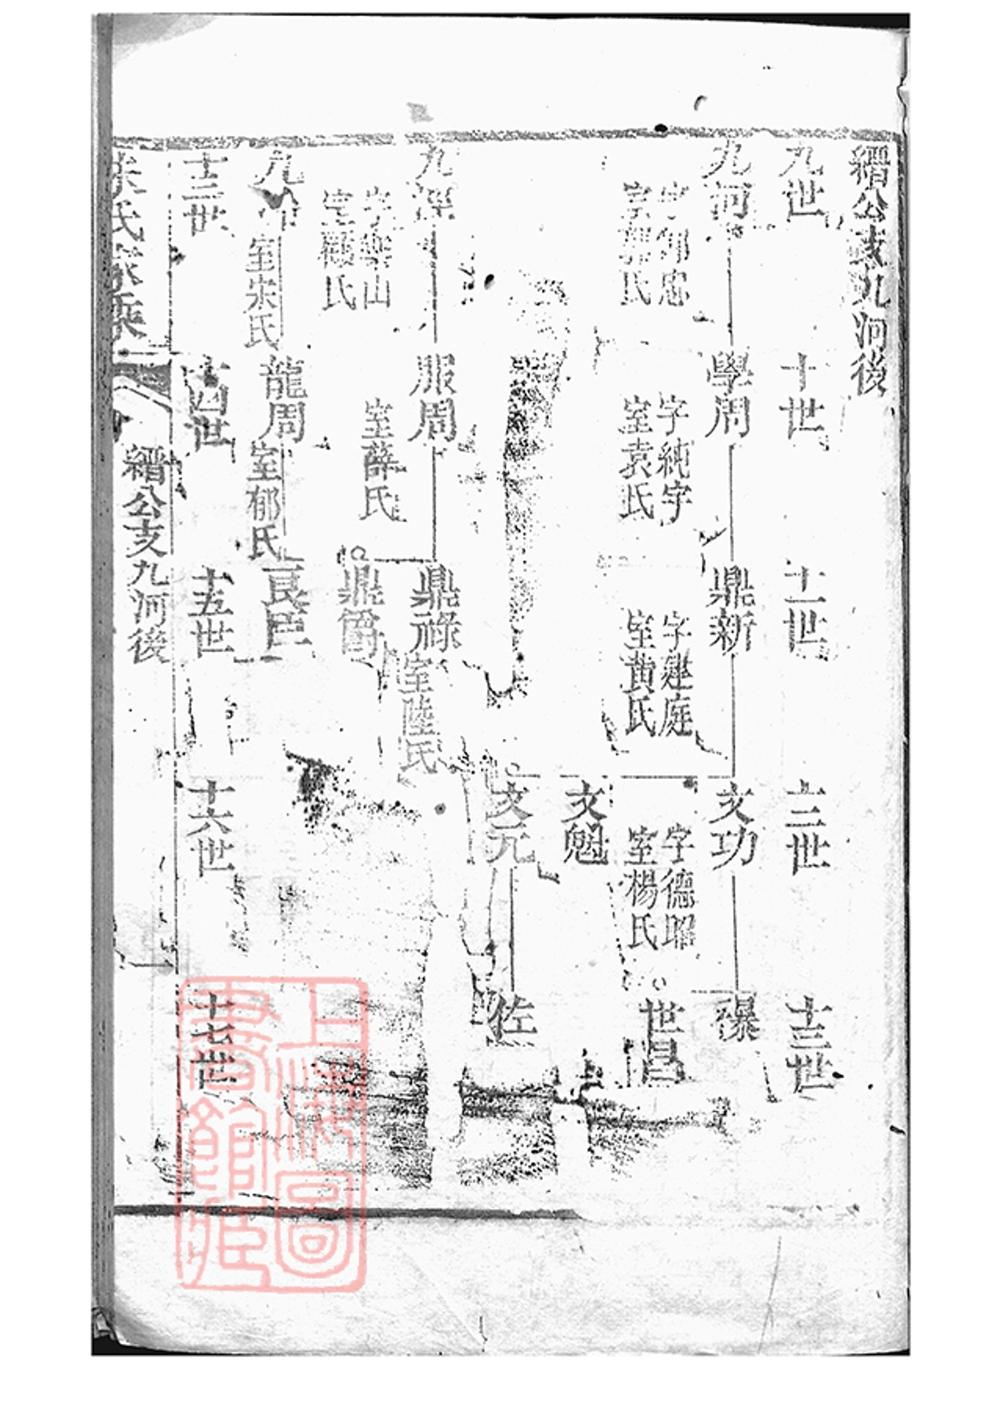 縉公支九河後
九世
十世
十一世
十二世
十三世
九河
學周
鼎新
文功
瀑
字純宇
室袁氏
字建庭
室黄氏
字德昭
室楊氏
世昌
文魁
文元
佐
九
服周
室薛氏
鼎祿
室陸氏
鼎爵
九
室宋氏
龍周
室郁氏
良臣
十三世
十四世
十五世
十六世
十七世
宋氏家乘
縉公支九河後
一
上海圖書館藏